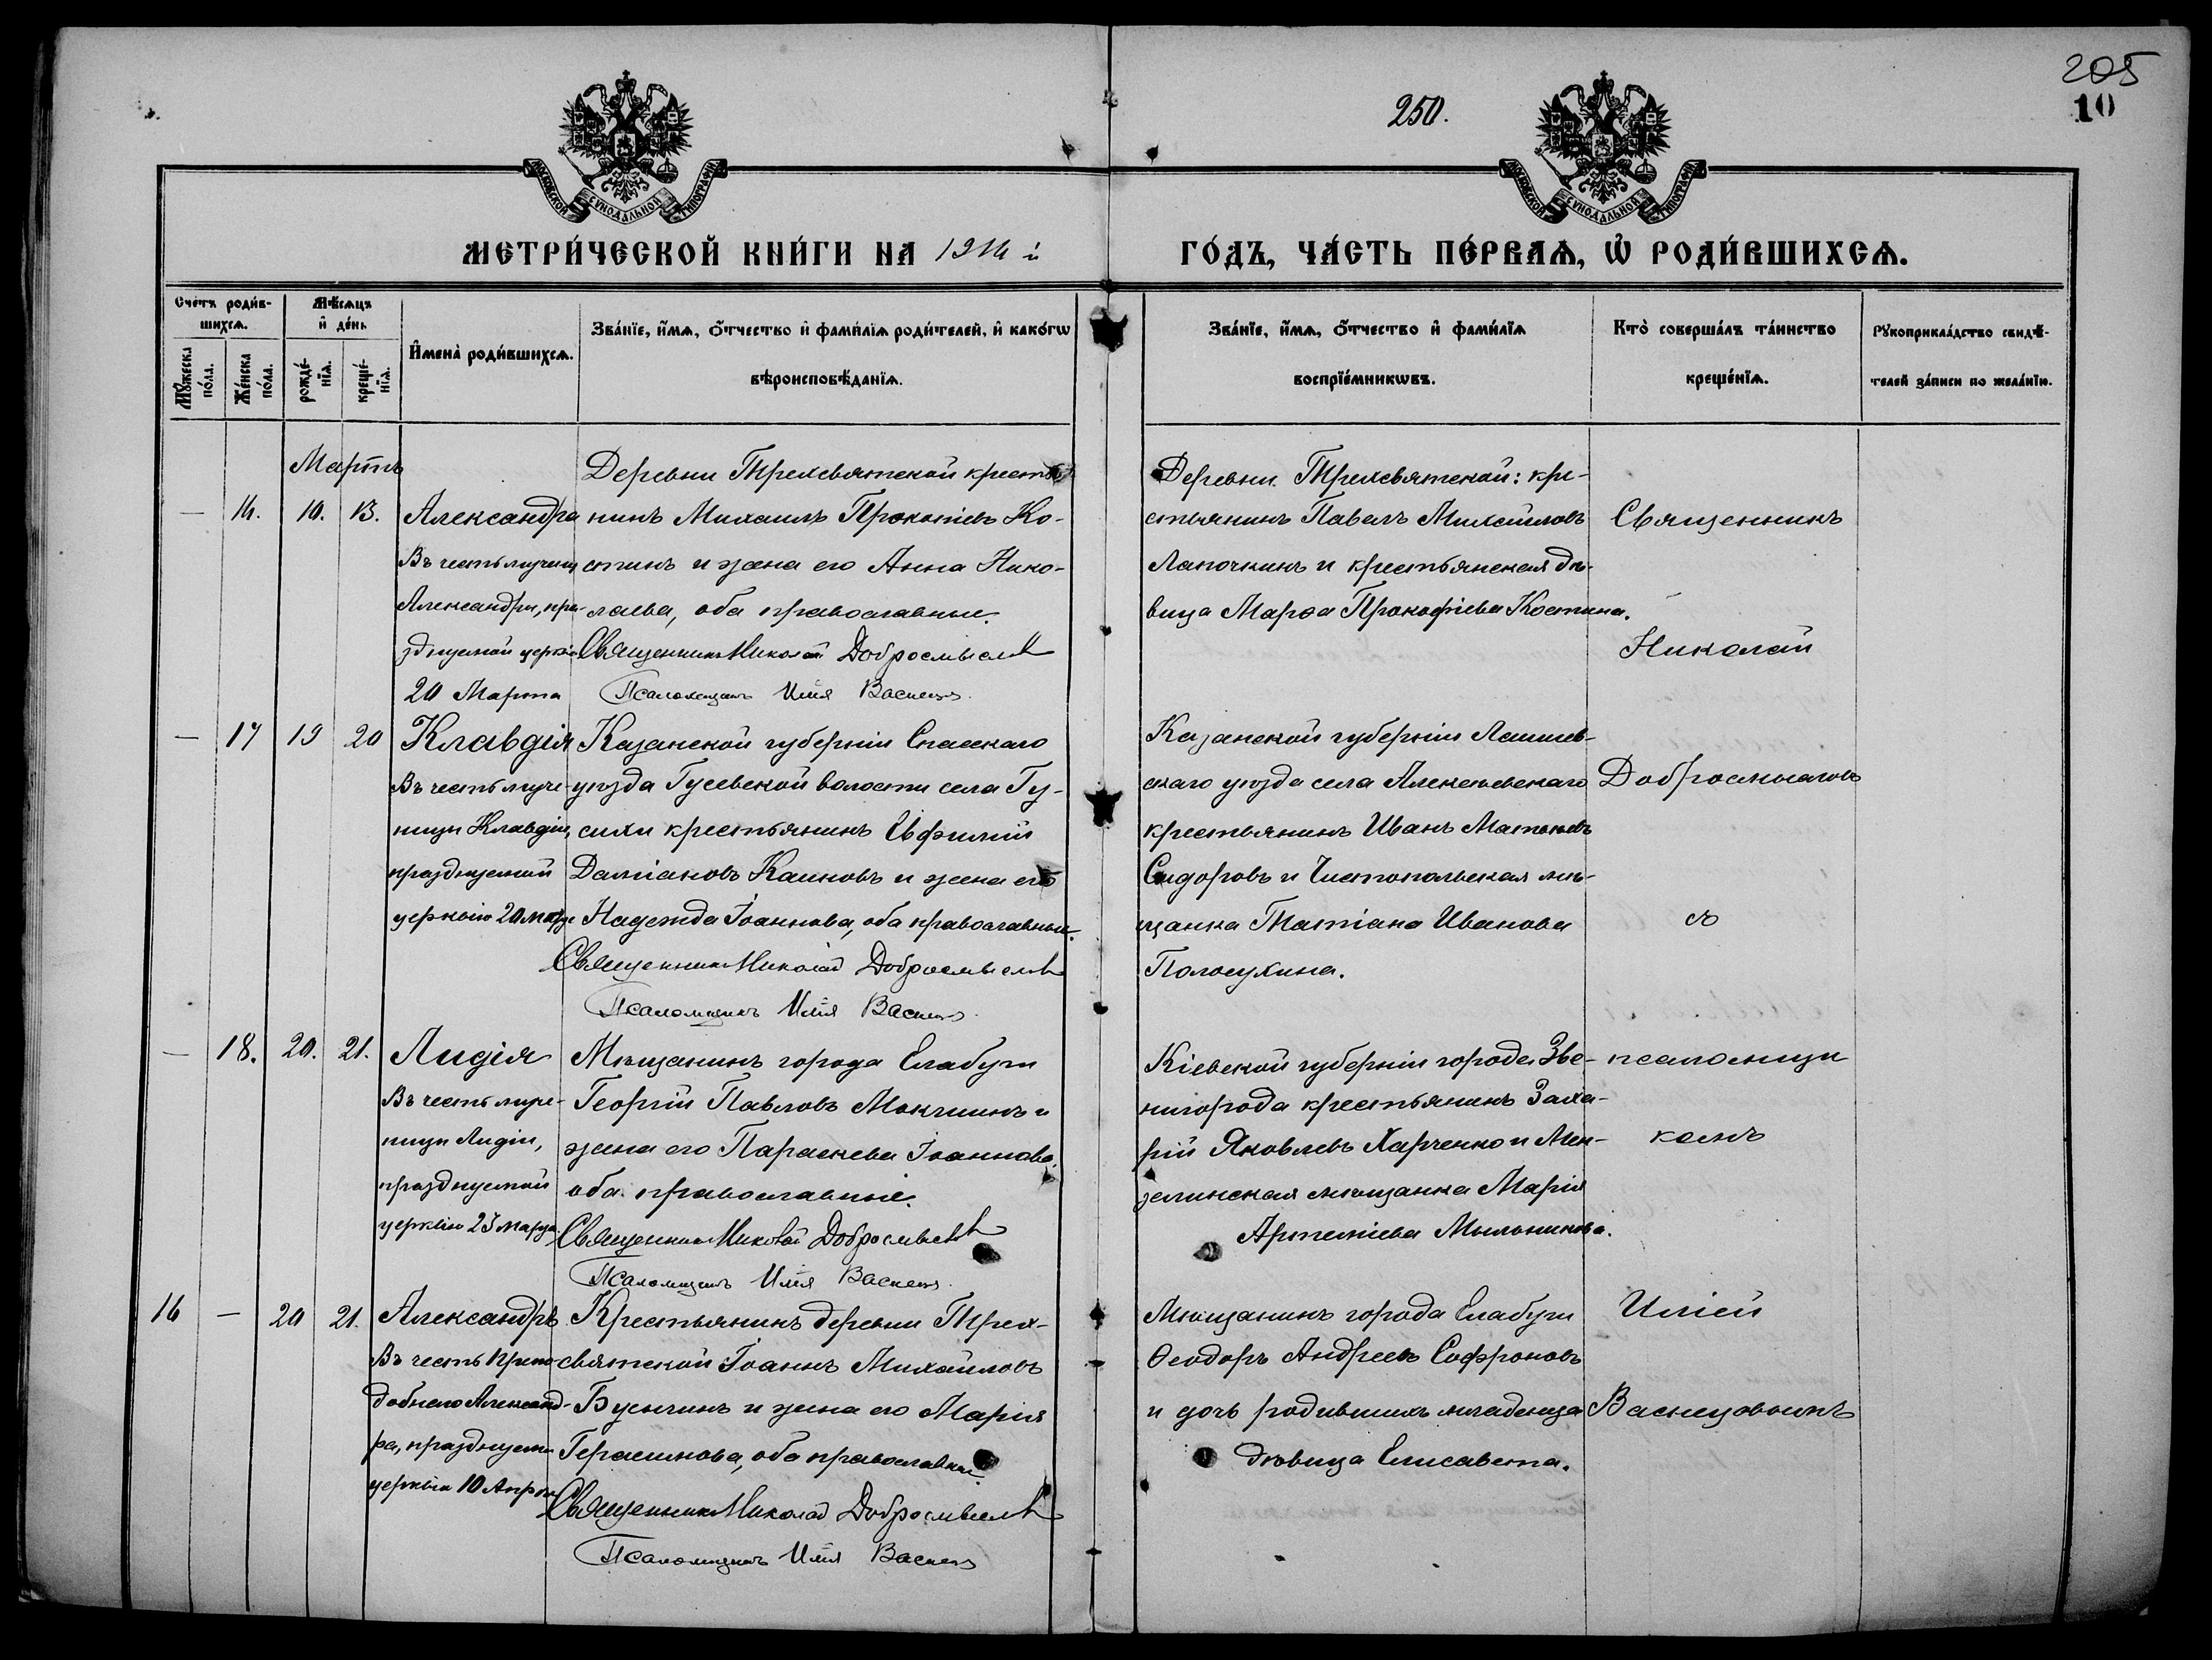 205
10
250.
МОСКОВСКОЙ СѴНОДАЛЬНОЙ ТИПОГРАФІИ
МОСКОВСКОЙ СѴНОДАЛЬНОЙ ТИПОГРАФІИ
МЕТРИ́ЧЕСКОЙ КНИ́ГИ НА 1914 й
ГО́ДЪ, ЧА́СТЬ ПЕ́РВАѦ, Ѡ҆ РОДИ́ВШИХСѦ.
Сче́тъ роди́в-
шихсѧ.
Мꙋ́жеска
по́ла.
Же́нска
по́ла.
Мѣ́сѧцъ
и҆ де́нь
рожде́-
нїѧ.
креще́-
нїѧ.
И҆мена̀ роди́вшихсѧ.
Зва́нїе, и҆́мѧ, ѻ҆́тчество и҆ фами́лїѧ роди́телей, и҆ како́гѡ
вѣроисповѣ́данїѧ.
Зва́нїе, и҆́мѧ, ѻ҆́тчество и҆ фами́лїѧ
воспрїе́мникѡвъ.
Кто̀ соверша́лъ та́инство
креще́нїѧ.
Рꙋкоприкла́дство свидѣ́-
телей за́писи по жела́нїю.
Мартъ
— 16. 10. 13.
Александра
Въ честь мучениц
Александры, пра-
зднуемой церков
20 Марта
Деревни Трехсвятской крестья
нинъ Михаилъ Прокопіевъ Ко-
стинъ и жена его Анна Нико-
лаева, оба православные.
Священникъ Николай Добросмысловъ
Псаломщикъ Илія Васнецовъ
Деревни Трехсвятской: кре-
стьянинъ Павелъ Михайловъ
Лапочкинъ и крестьянская дѣ-
вица Марѳа Прокофіева Костина.
— 17 19 20
Клавдія
Въ честь муче-
ницы Клавдіи,
празднуемой
церковію 20 марта
Казанской губерніи Спасскаго
уѣзда Гусевской волости села Гу-
сихи крестьянинъ Евфимій
Даміановъ Каиновъ и жена его
Надежда Іоаннова, оба православные.
Священникъ Николай Добросмысловъ
Псаломщикъ Илія Васнецовъ
Казанской губерніи Лаишев-
скаго уѣзда села Алексѣевскаго
крестьянинъ Иванъ Матвѣевъ
Сидоровъ и Чистопольская мѣ-
щанка Татіана Иванова
Полосухина.
— 18. 20. 21.
Лидія
Въ честь муче-
ницы Лидіи,
празднуемой
церковію 23 марта
Мѣщанинъ города Елабуги
Георгій Павловъ Мокшинъ и
жена его Параскева Іоаннова,
оба православные.
Священникъ Николай Добросмысловъ
Псаломщикъ Илія Васнецовъ
Кіевской губерніи города Зве-
нигорода крестьянинъ Заха-
рій Яковлевъ Харченко и Мен-
зелинская мѣщанка Марія
Артеміева Мыльникова.
16 — 20 21.
Александръ
Въ честь Препо-
добнаго Александ-
ра, празднуем
церковію 10 Апрѣля
Крестьянинъ деревни Трех-
святской Іоаннъ Михайловъ
Бусыгинъ и жена его Марія
Герасимова, оба православные
Священникъ Николай Добросмысловъ
Псаломщикъ Илія Васнецовъ
Мѣщанинъ города Елабуги
Ѳеодоръ Андреевъ Софроновъ
и дочь родившихъ младенца
дѣвица Елисавета.
Священникъ
Николай
Добросмысловъ
съ
псаломщи
комъ
Иліей
Васнецовымъ